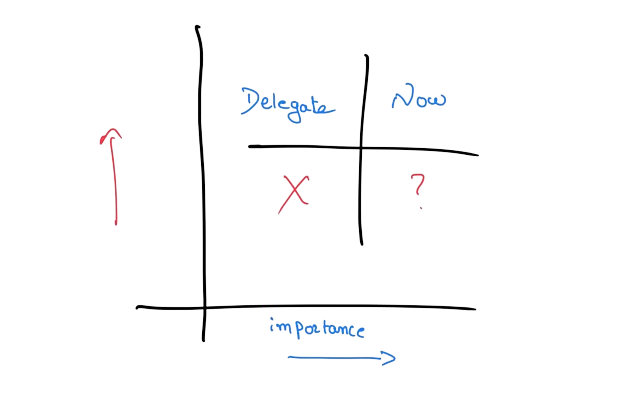 Delegate
Now
X
?
importance